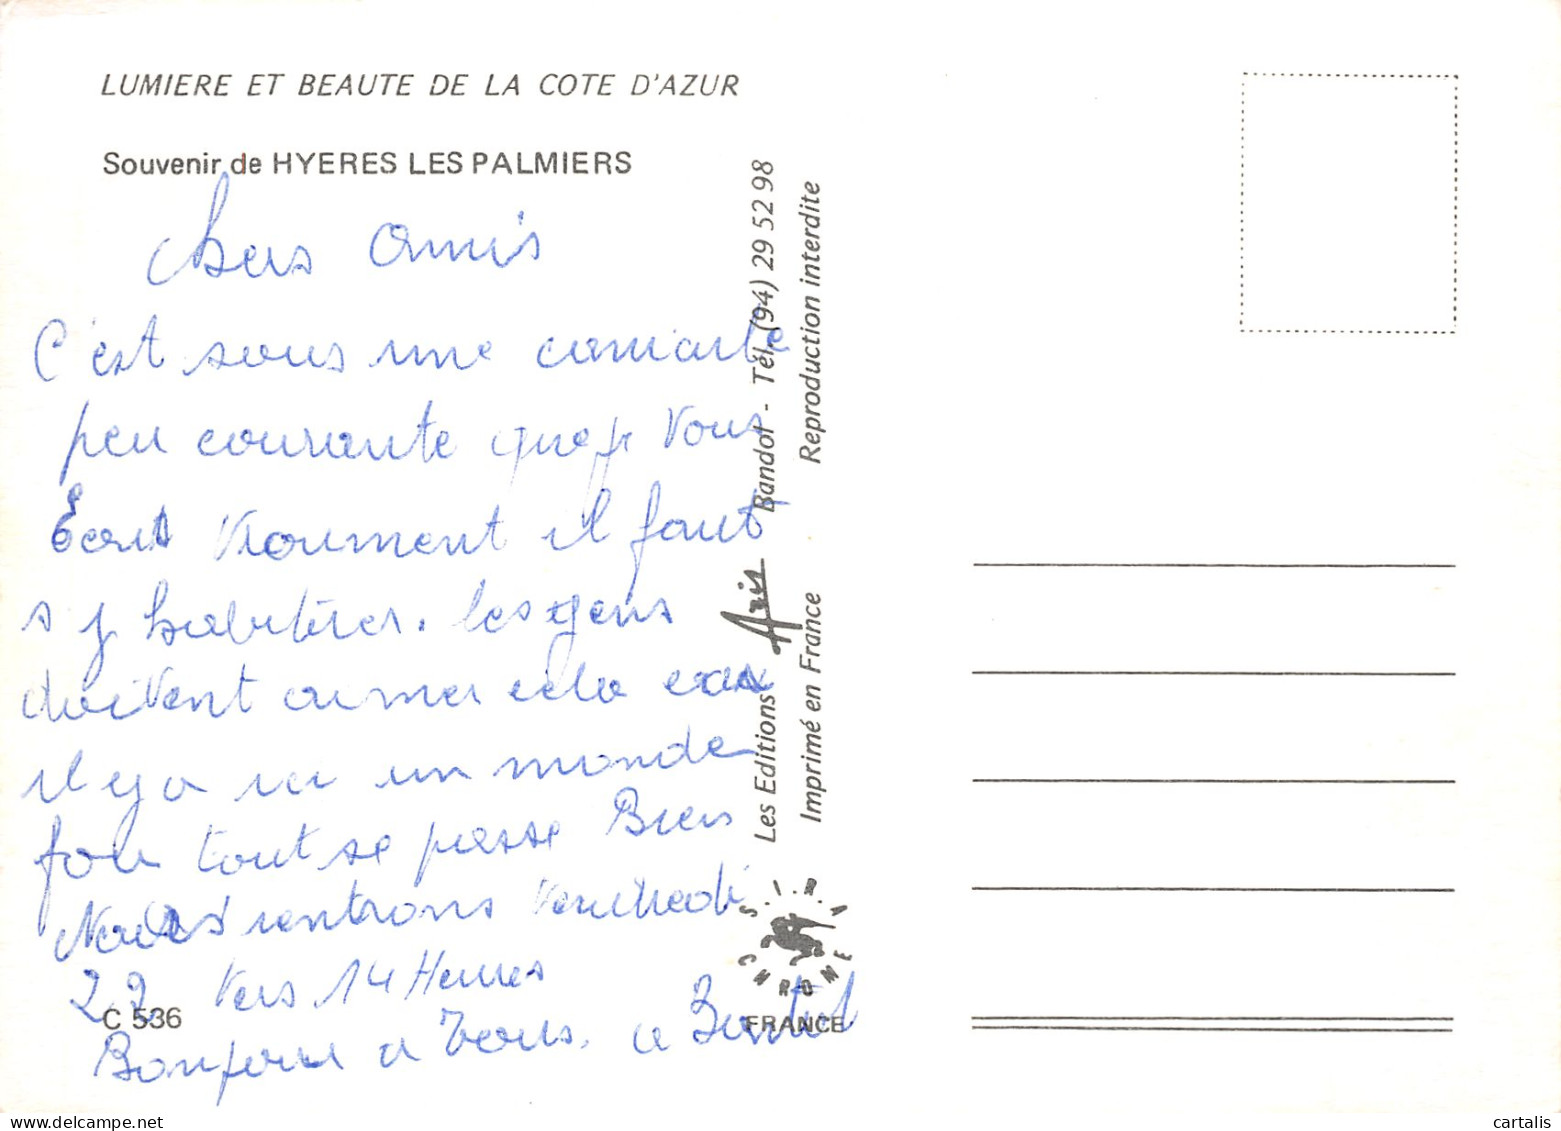 LUMIERE ET BEAUTE DE LA COTE D'AZUR
Souvenir de HYERES LES PALMIERS
Chers Amis
C'est sous une caniarte
peu courante que je vous
Ecris vraiment il faut
s y habituer. les gens
doivent aimer cela car
il y a ici un monde
fou tout se passe Bien
Nous rentrons Vendredi
22 Vers 14 Heures
Bonjour a Tous. a Bientot
C 536
Les Editions Aris Bandol - Tél. (94) 29 52 98
Imprimé en France Reproduction interdite
S.I.R.A
CHROME
FRANCE
cartalis